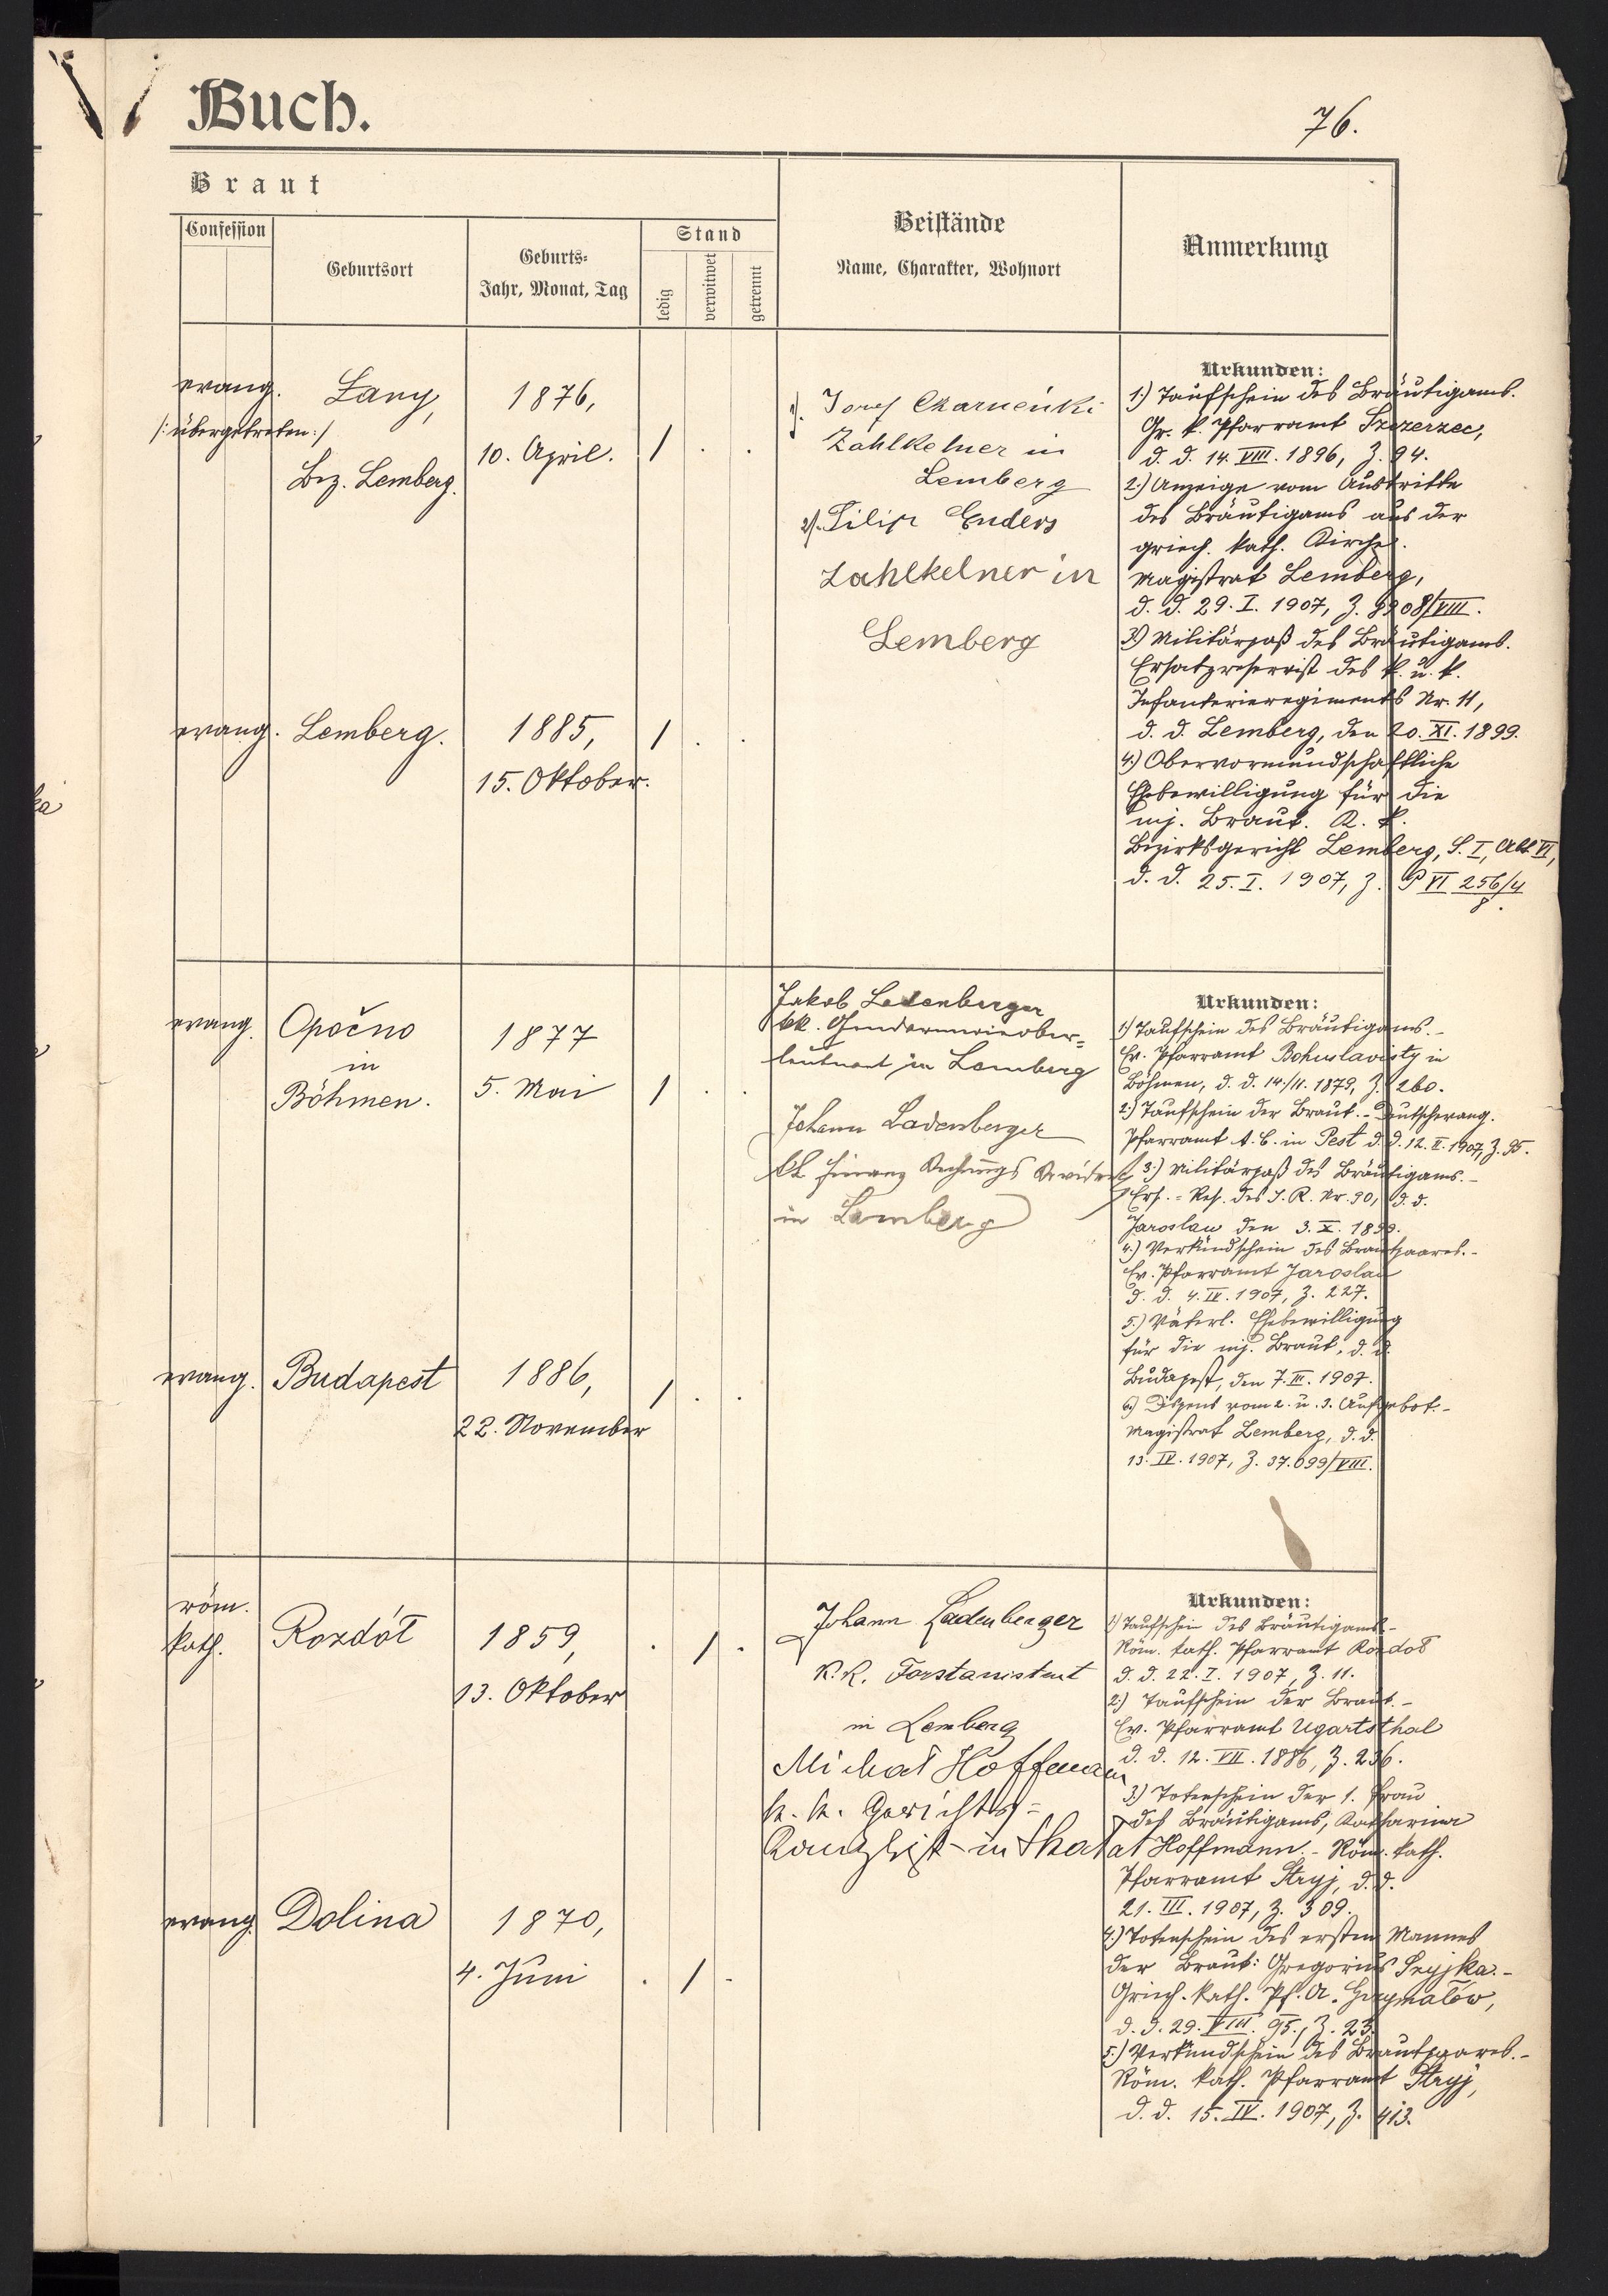 Buch.
76.
Braut
Confession
Geburtsort
Geburts-
Jahr, Monat, Tag
Stand
ledig
verwitwet
getrennt
Beistände
Name, Charakter, Wohnort
Anmerkung
evang.
/: übergetreten :/
Łany,
Bez. Lemberg.
1876,
10. April.
1) Josef
Zahlkelner in
Lemberg
2) Filip Enders
Zahlkelner in
Lemberg
Urkunden:
1.) Taufschein des Bräutigams.
Gr. k. Pfarramt Szczerzec,
d. d. 14. VIII. 1896, Z. 94.
2.) Anzeige vom Austritte
des Bräutigams aus der
griech. kath. Kirche.
Magistrat Lemberg,
d. d. 29. I. 1907, Z.
3.) Militärpaß des Bräutigams.
Ersatzreservist des k. u. k.
Infanterieregiments Nr. 11,
d. d. Lemberg, den 20. XI. 1899.
4.) Obervormundschaftliche
Ehebewilligung für die
mj. Braut. K. k.
Bezirksgericht Lemberg, S. I, Abt VI,
d. d. 25. I. 1907, Z. P VI 256/4
8.
evang.
Lemberg.
1885,
15. Oktober.
evang.
Opočno
in
Böhmen.
1877
5. Mai
Jakob Ladenberger
kk. Gendarmerieober-
leutnant in Lemberg
Johann Ladenberger
kk Finanz Rechnungs Revident
in Lemberg
Urkunden:
1.) Taufschein des Bräutigams.-
Ev. Pfarramt in
Böhmen, d. d. 14./11. 1879, Z. 260.
2.) Taufschein der Braut.- Deutschevang.
Pfarramt A. B. in Pest d. d. 12. II. 1907, Z. 95.
3.) Militärpaß des Bräutigams.-
Ers.-Res. des I. R. Nr. 90, d. d.
Jaroslau den 3. X. 1899.
4.) Verkündschein des Brautpaares.-
Ev. Pfarramt Jaroslau
d. d. 4. IV. 1907, Z. 227.
5.) Väterl. Ehebewilligung
für die mj. Braut, d. d.
Budapest, den 7. III. 1907.
6.) Dispens vom 2. u. 3. Aufgebot.-
Magistrat Lemberg, d. d.
13. IV. 1907, Z. 37.699/VIII.
evang.
Budapest
1886,
22. November
röm.
kath.
Rozdół
1859,
13. Oktober
Johann Ladenberger
K. K. Forstassistent
in Lemberg
Michał Hoffmann
k. k. Gerichts-
Kanzlist in Skałat
Urkunden:
1.) Taufschein des Bräutigams.-
Röm. kath. Pfarramt Rozdół
d. d. 22. I. 1907, Z. 11.
2.) Taufschein der Braut.-
Ev. Pfarramt Ugartsthal
d. d. 12. VII. 1886, Z. 236.
3.) Totenschein der 1. Frau
des Bräutigams, Katharina
Hoffmann.- Röm. kath.
Pfarramt Stryj, d. d.
21. III. 1907, Z. 309.
4.) Totenschein des ersten Mannes
der Braut: Gregorius
Griech. kath. Pf. A. Grzymałów,
d. d. 29. VIII. 95., Z. 23.
5.) Verkündschein des Brautpaares.-
Röm. kath. Pfarramt Stryj,
d. d. 15. IV. 1907, Z. 413.
evang.
Dolina
1870,
4. Juni